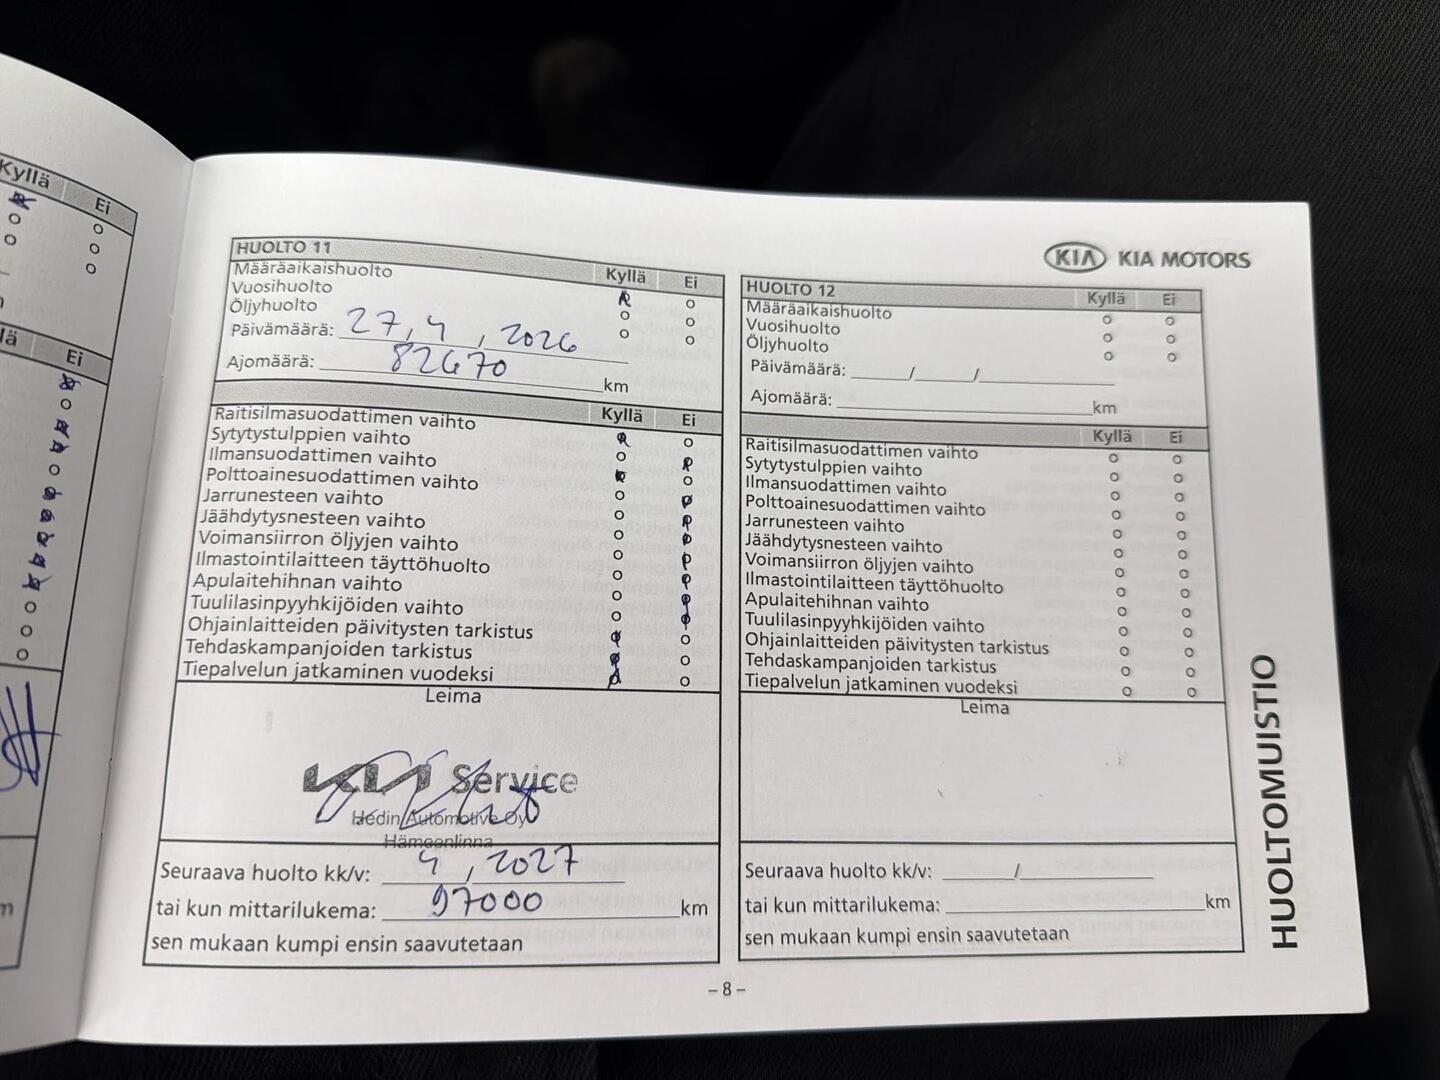 Kyllä Ei
lä Ei
m
HUOLTO 11 Kyllä Ei
Määräaikaishuolto
Vuosihuolto
Öljyhuolto
Päivämäärä: 27,4,2026
Ajomäärä: 82670 km
Kyllä Ei
Raitisilmasuodattimen vaihto
Sytytystulppien vaihto
Ilmansuodattimen vaihto
Polttoainesuodattimen vaihto
Jarrunesteen vaihto
Jäähdytysnesteen vaihto
Voimansiirron öljyjen vaihto
Ilmastointilaitteen täyttöhuolto
Apulaitehihnan vaihto
Tuulilasinpyyhkijöiden vaihto
Ohjainlaitteiden päivitysten tarkistus
Tehdaskampanjoiden tarkistus
Tiepalvelun jatkaminen vuodeksi
Leima
KIA Service
Hedin Automotive Oy
Hämeenlinna
Seuraava huolto kk/v: 4, 2027
tai kun mittarilukema: 97000 km
sen mukaan kumpi ensin saavutetaan
KIA KIA MOTORS
HUOLTO 12 Kyllä Ei
Määräaikaishuolto
Vuosihuolto
Öljyhuolto
Päivämäärä: / /
Ajomäärä: km
Kyllä Ei
Raitisilmasuodattimen vaihto
Sytytystulppien vaihto
Ilmansuodattimen vaihto
Polttoainesuodattimen vaihto
Jarrunesteen vaihto
Jäähdytysnesteen vaihto
Voimansiirron öljyjen vaihto
Ilmastointilaitteen täyttöhuolto
Apulaitehihnan vaihto
Tuulilasinpyyhkijöiden vaihto
Ohjainlaitteiden päivitysten tarkistus
Tehdaskampanjoiden tarkistus
Tiepalvelun jatkaminen vuodeksi
Leima
Seuraava huolto kk/v: /
tai kun mittarilukema: km
sen mukaan kumpi ensin saavutetaan
HUOLTOMUISTIO
– 8 –